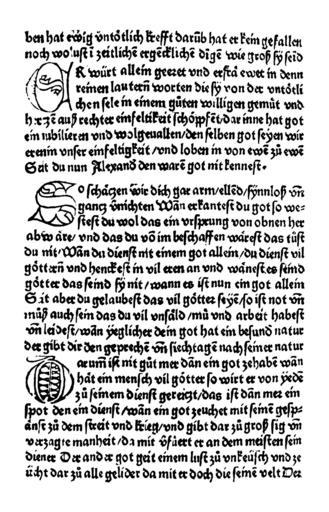 ben hat ewig vntötlich krefft darūb hat er kein gefallen
noch wollust ī zeitlichē ergēcklichē dīgē wie groß sy seid
ER würt allein geeret vnd erstā ewet in denn
reinen lautern worten die sy von der vntötli
chen sele in einem gůten willigen gemüt vnd
hertzen auß rechter einfeltikeit schöpffent/dar inne hat got
ein iubilieren vnd wolgeuallen/den selben got seyen wir
ererin vnser einfeltigkeit/vnd loben in von ewē zů ewē
Seit du nun Alexander den waren got nit kennest.
SO schätzen wir dich gar arm/ellēd/synnloß vñ
gantz vnichten Wān erkantest du got so we-
stest du wol das ein vrsprung von obnen her
ab wāre/vnd das du vō im beschaffen wārest das tůst
du nit/Wān du dienst nit einem got allein/du dienst vil
göttern vnd henckest in vil eren an vnd wānest es seind
götter das seind sy nit/wann es ist nun ein got allein
Seit aber du gelaubest das vil götter seyē/so ist not vñ
můß auch sein das du vil vnfāld/mü vnd arbeit habest
vñ leidest/wān yeglicher dem got hat ein besund natur
der gibt dir den geprechē vñ siechtagen nach seiner natur
Darum ist nit gůt mer dān ein got zehaben wān
hāt ein mensch vil götter so wirt er von yede
zů seinem dienst gereitzt/das ist dān mer ein
spot den ein dienst/wān ein got zeuchet mit seinē gesp-
ānst zů dem streit vnd krieg/vnd gibt dar zů groß sig vñ
vnd got geit einem lust zů vnkeüsch vnd ze